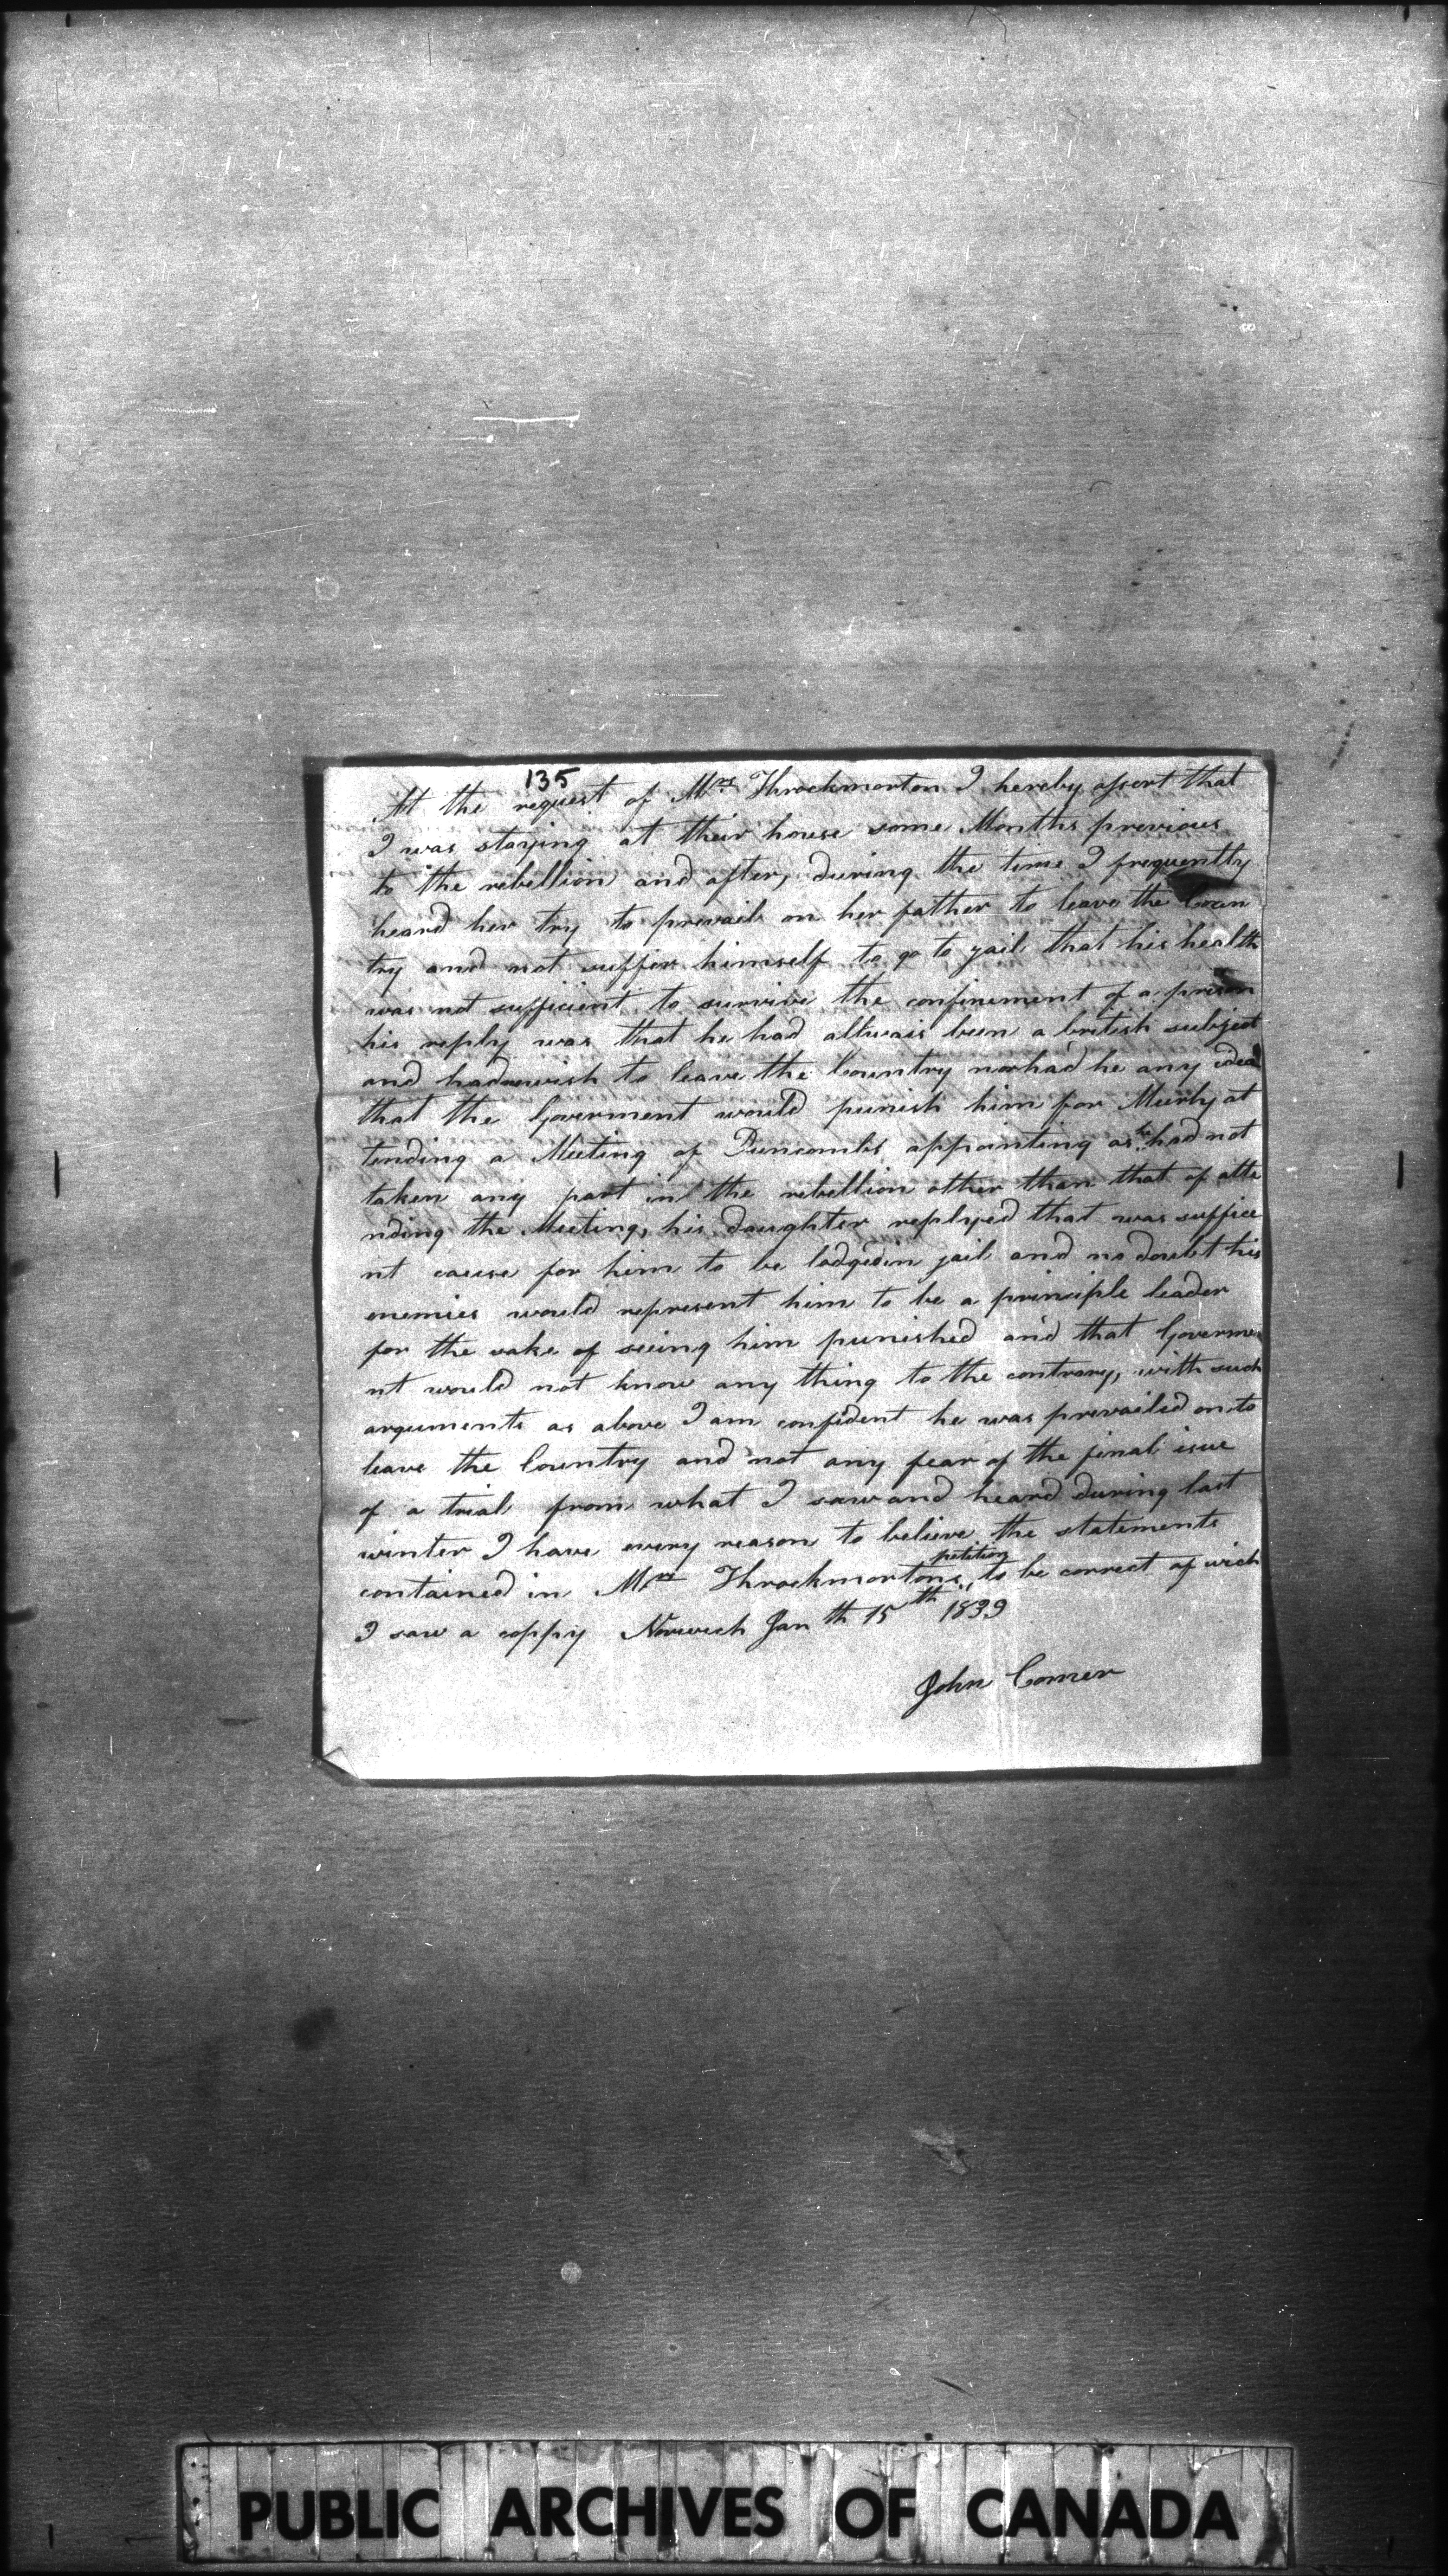 135
At the request of Mrs Throckmorton I hereby assert that
I was staying at their house some Months previous
to the rebellion and after, during the time I frequently
heard her try to prevail on her father to leave the Coun
try and not suffer himself to go to jail that his health
was not sufficient to survive the confinement of a prison
his reply was that he had allwais been a british subject
and had no wish to leave the Country nor had he any idea
that the Goverment would punish him for Meerly at
tending a Meeting of Duncombs appointing as he had not
taken any part in the rebellion other than that of atte
nding the Meeting, his daughter replyed that was suffice
nt cause for him to be lodged in jail and no doubt his
enemies would represent him to be a principle leader
for the sake of seeing him punished and that Governme
nt would not know any thing to the contrary, with such
arguments as above I am confident he was prevailed on to
leave the Country and not any fear of the final isue
of a trial from what I saw and heard during last
winter I have every reason to believe the statements
contained in Mrs Throckmortons petition to be correct of wich
I saw a coppy Norwich Jan th 15th 1839
John Comer
PUBLIC ARCHIVES OF CANADA